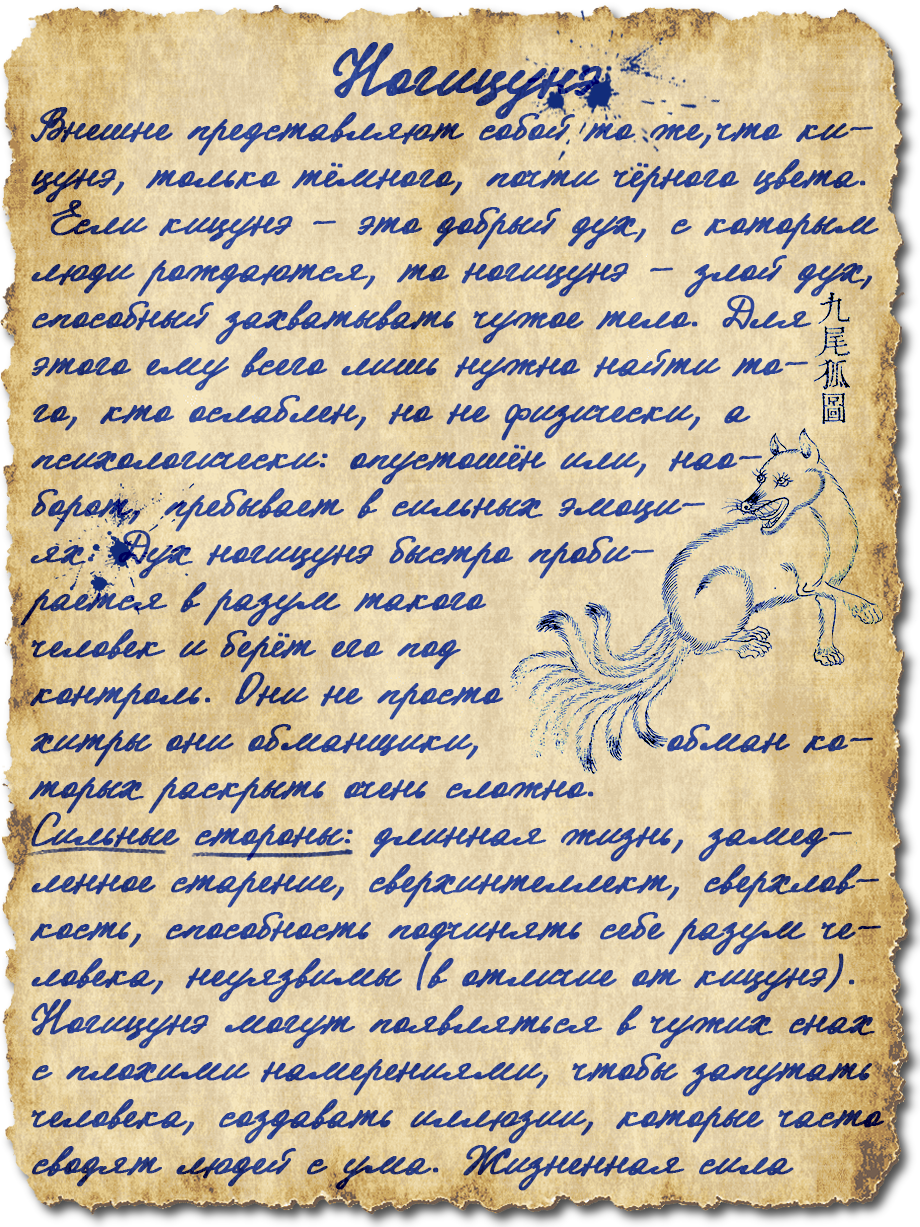 Ногицунэ
Внешне представляют собой то же,что ки-
цунэ, только тёмного, почти чёрного цвета.
Если кицунэ – это добрый дух, с которым
люди рождаются, то ногицунэ – злой дух,
способный захватывать чужое тело. Для
этого ему всего лишь нужно найти то-
го, кто ослаблен, но не физически, а
психологически: опустошён или, нао-
борот, пребывает в сильных эмоци-
ях: Дух ногицунэ быстро проби-
рается в разум такого
человек и берёт его под
контроль. Они не просто
хитры они обманщики, обман ко-
торых раскрыть очень сложно.
Сильные стороны: длинная жизнь, замед-
ленное старение, сверхинтеллект, сверхлов-
кость, способность подчинять себе разум че-
ловека, неуязвимы (в отличие от кицунэ).
Ногицунэ могут появляться в чужих снах
с плохими намерениями, чтобы запутать
человека, создавать иллюзии, которые часто
сводят людей с ума. Жизненная сила
九尾狐圖